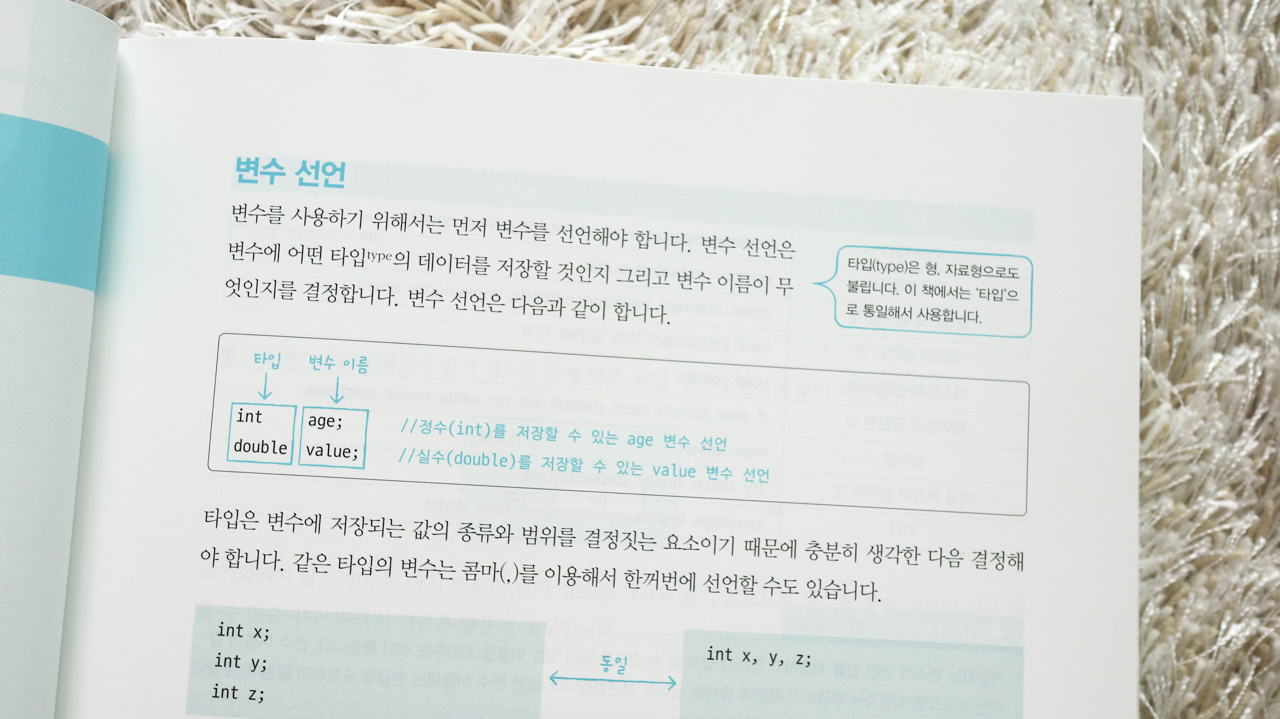 변수 선언
변수를 사용하기 위해서는 먼저 변수를 선언해야 합니다. 변수 선언은
변수에 어떤 타입type의 데이터를 저장할 것인지 그리고 변수 이름이 무
엇인지를 결정합니다. 변수 선언은 다음과 같이 합니다.
타입(type)은 형, 자료형으로도
불립니다. 이 책에서는 '타입'으
로 통일해서 사용합니다.
타입 변수 이름
int age; //정수(int)를 저장할 수 있는 age 변수 선언
double value; //실수(double)를 저장할 수 있는 value 변수 선언
타입은 변수에 저장되는 값의 종류와 범위를 결정짓는 요소이기 때문에 충분히 생각한 다음 결정해
야 합니다. 같은 타입의 변수는 콤마(,)를 이용해서 한꺼번에 선언할 수도 있습니다.
int x;
int y;
int z;
동일
int x, y, z;